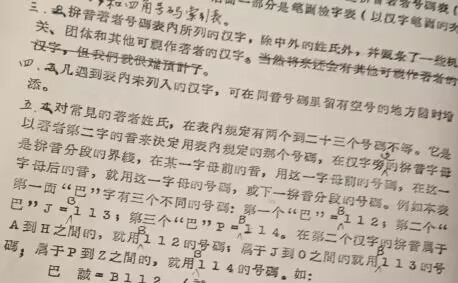 部分是笔画检字表（以汉字笔画的
和四角号码索引表。
三．拼音著者号碼表内所列的汉字，除中外的姓氏外，并照象了一些机
关、团体和其他可能作著者的汉字。当然将来还会有其他可能作著者的
汉字，但我们就很难预計了。
四．凡遇到表内未列入的汉字，可在同音号碼里留有空号的地方随时增
添。
五．对常見的著者姓氏，在表内規定有两个到二十三个号碼不等。它是
以著者第二字的音来决定用表内規定的那个号碼，在汉字旁的拼音字母
是拼音分段的界綫，在某一字母前的音，用这一字母前的号碼，在这一
字母后的音，就用这一字母的号碼，或下一拼音分段的号碼。例如本表
第一面“巴”字有三个不同的号碼：第一个“巴”=B112；第二个“
巴”J=B113；第三个“巴”P=B114。在第二个汉字的拼音属于
A到H之間的，就用B112的号碼；属于J到O之間的就用B113的号
碼；属于P到Z之間的，就用B114的号碼。如：
巴 =B112